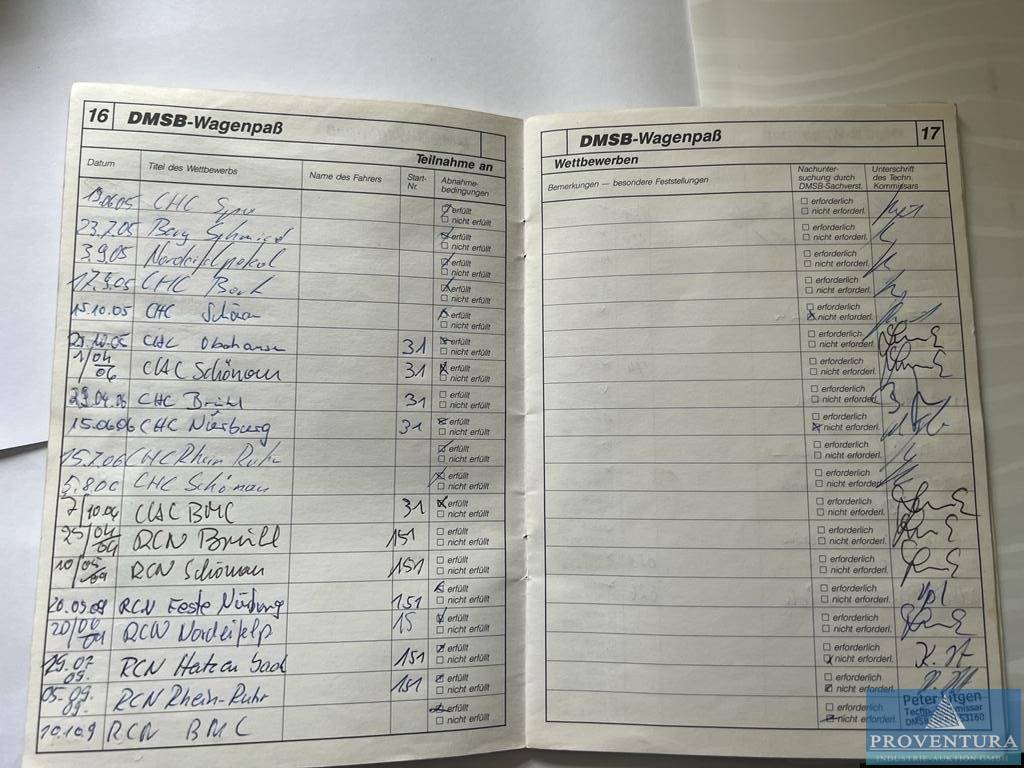 16 DMSB-Wagenpaß
Teilnahme an
Datum Titel des Wettbewerbs Name des Fahrers Start-Nr. Abnahme-bedingungen
CHC
erfüllt
nicht erfüllt
23.7.05 Berg Schmied
erfüllt
nicht erfüllt
3.9.05 Nordeifelpokal
erfüllt
nicht erfüllt
CHC
erfüllt
nicht erfüllt
15.10.05 CHC Schönau
erfüllt
nicht erfüllt
CHC 31
erfüllt
nicht erfüllt
1/04/06 CHC Schönau 31
erfüllt
nicht erfüllt
29.04.06 CHC Brühl 31
erfüllt
nicht erfüllt
15.06.06 CHC Nürburg 31
erfüllt
nicht erfüllt
15.7.06 CHC Rhein Ruhr
erfüllt
nicht erfüllt
5.8.06 CHC Schönau
erfüllt
nicht erfüllt
CHC BMC 31
erfüllt
nicht erfüllt
RCN Brühl 151
erfüllt
nicht erfüllt
RCN Schönau 151
erfüllt
nicht erfüllt
RCN Feste Nürburg 151
erfüllt
nicht erfüllt
RCN 15
erfüllt
nicht erfüllt
RCN 151
erfüllt
nicht erfüllt
05.09.09. RCN Rhein-Ruhr 151
erfüllt
nicht erfüllt
10.10.9 RCN BMC
erfüllt
nicht erfüllt
DMSB-Wagenpaß 17
Wettbewerben
Bemerkungen — besondere Feststellungen
Nachunter-
suchung durch
DMSB-Sachverst.
Unterschrift
des Techn.
Kommissars
erforderlich
nicht erforderl.
erforderlich
nicht erforderl.
erforderlich
nicht erforderl.
erforderlich
nicht erforderl.
erforderlich
nicht erforderl.
erforderlich
nicht erforderl.
erforderlich
nicht erforderl.
erforderlich
nicht erforderl.
erforderlich
nicht erforderl.
erforderlich
nicht erforderl.
erforderlich
nicht erforderl.
erforderlich
nicht erforderl.
erforderlich
nicht erforderl.
erforderlich
nicht erforderl.
erforderlich
nicht erforderl.
erforderlich
nicht erforderl.
erforderlich
nicht erforderl.
erforderlich
nicht erforderl.
erforderlich
nicht erforderl.
Peter
DMSB
PROVENTURA
INDUSTRIE-AUKTION GMBH